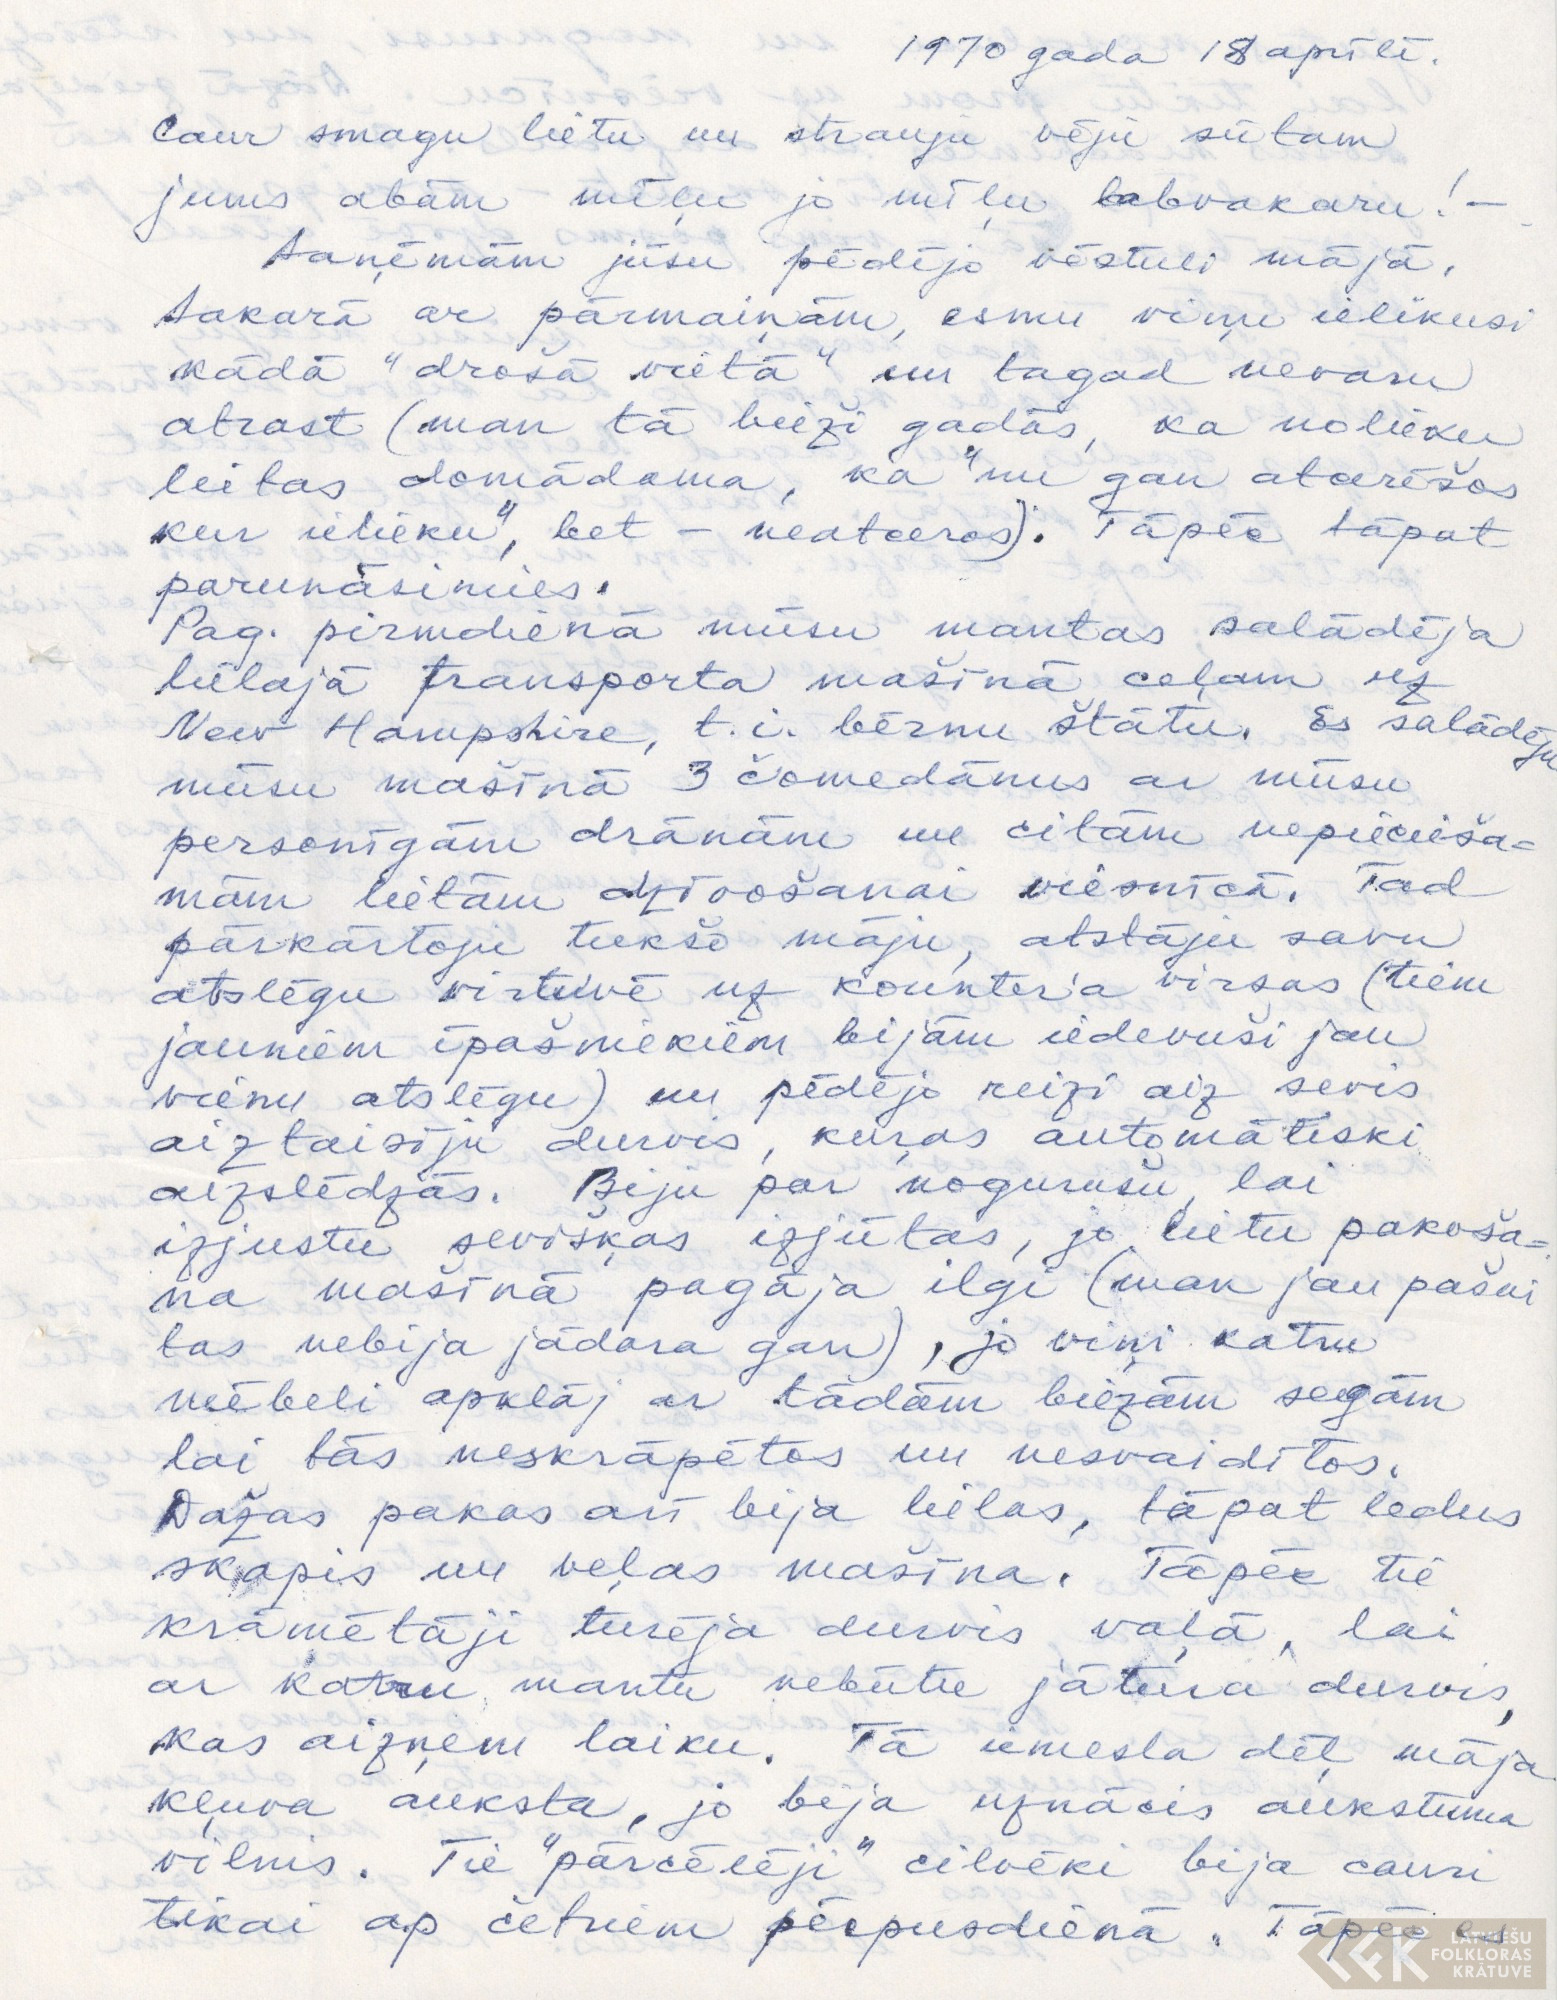 1970 gada 18 aprīlī.
Caur smagu lietu un strauju vēju sūtam
jums abām mīļu jo mīļu labvakaru! –
Saņēmām jūsu pēdējo vēstuli mājā.
Sakarā ar pārmaiņām, esmu viņu ielikusi
kādā "drošā vietā" un tagad nevaru
atrast (man tā bieži gadās, ka nolieku
lietas domādama, ka "nu gan atcerēšos
kur ielieku", bet – neatceros). Tāpēc tāpat
parunāsimies.
Pag. pirmdienā mūsu mantas salādēja
lielajā transporta mašīnā ceļam uz
New Hampshire, t.i. bērnu štātu. Es salādēju
mūsu mašīnā 3 čomedānus ar mūsu
personīgām drānām un citām nepiecieša=
mām lietām dzīvošanai viesnīcā. Tad
pārkārtoju tukšo māju, atstāju savu
atslēgu virtuvē uz kounter'a virsas (tiem
jauniem īpašniekiem bijām iedevuši jau
vienu atslēgu) un pēdējo reizi aiz sevis
aiztaisīju durvis, kuŗas automātiski
aizslēdzās. Biju par nogurušu, lai
izjustu sevišķas izjūtas, jo lietu pakoša=
na mašīnā pagāja ilgi (man jau pašai
tas nebija jādara gan), jo viņi katru
mēbeli apklāj ar tādām biezām segām
lai tās neskrāpētos un nesvaidītos.
Dažas pakas arī bija lielas, tāpat ledus
skapis un veļas mašīna. Tāpēc tie
krāmētāji turēja durvis vaļā, lai
ar katru mantu nebūtu jātura durvis,
kas aizņem laiku. Tā iemesla dēļ māja
kļuva auksta, jo bija uznācis aukstuma
vilnis. Tie "pārcēlēji" cilvēki bija cauri
tikai ap četriem pēcpusdienā. Tāpēc es
LATVIEŠU
FOLKLORAS
KRĀTUVE